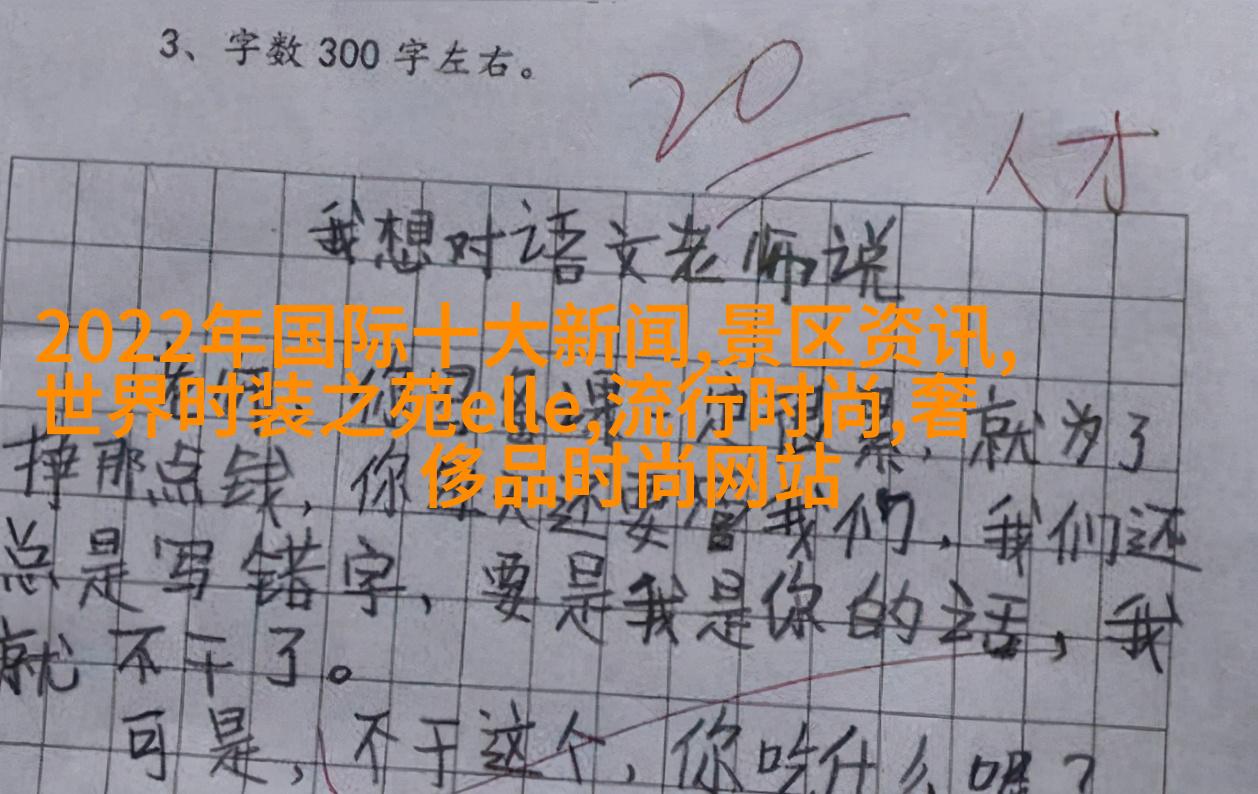 3、字数 300 字左右。
20
人才
我想对语文老师说
2022年国际十大新闻,景区资讯,
世界时装之苑elle,流行时尚,奢
侈品时尚网站
就为了
挣那点钱，你还要管我们，我们还
总是写错字，要是我是你的话，我
就不干了。
可是，不干这个，你吃什么呢？